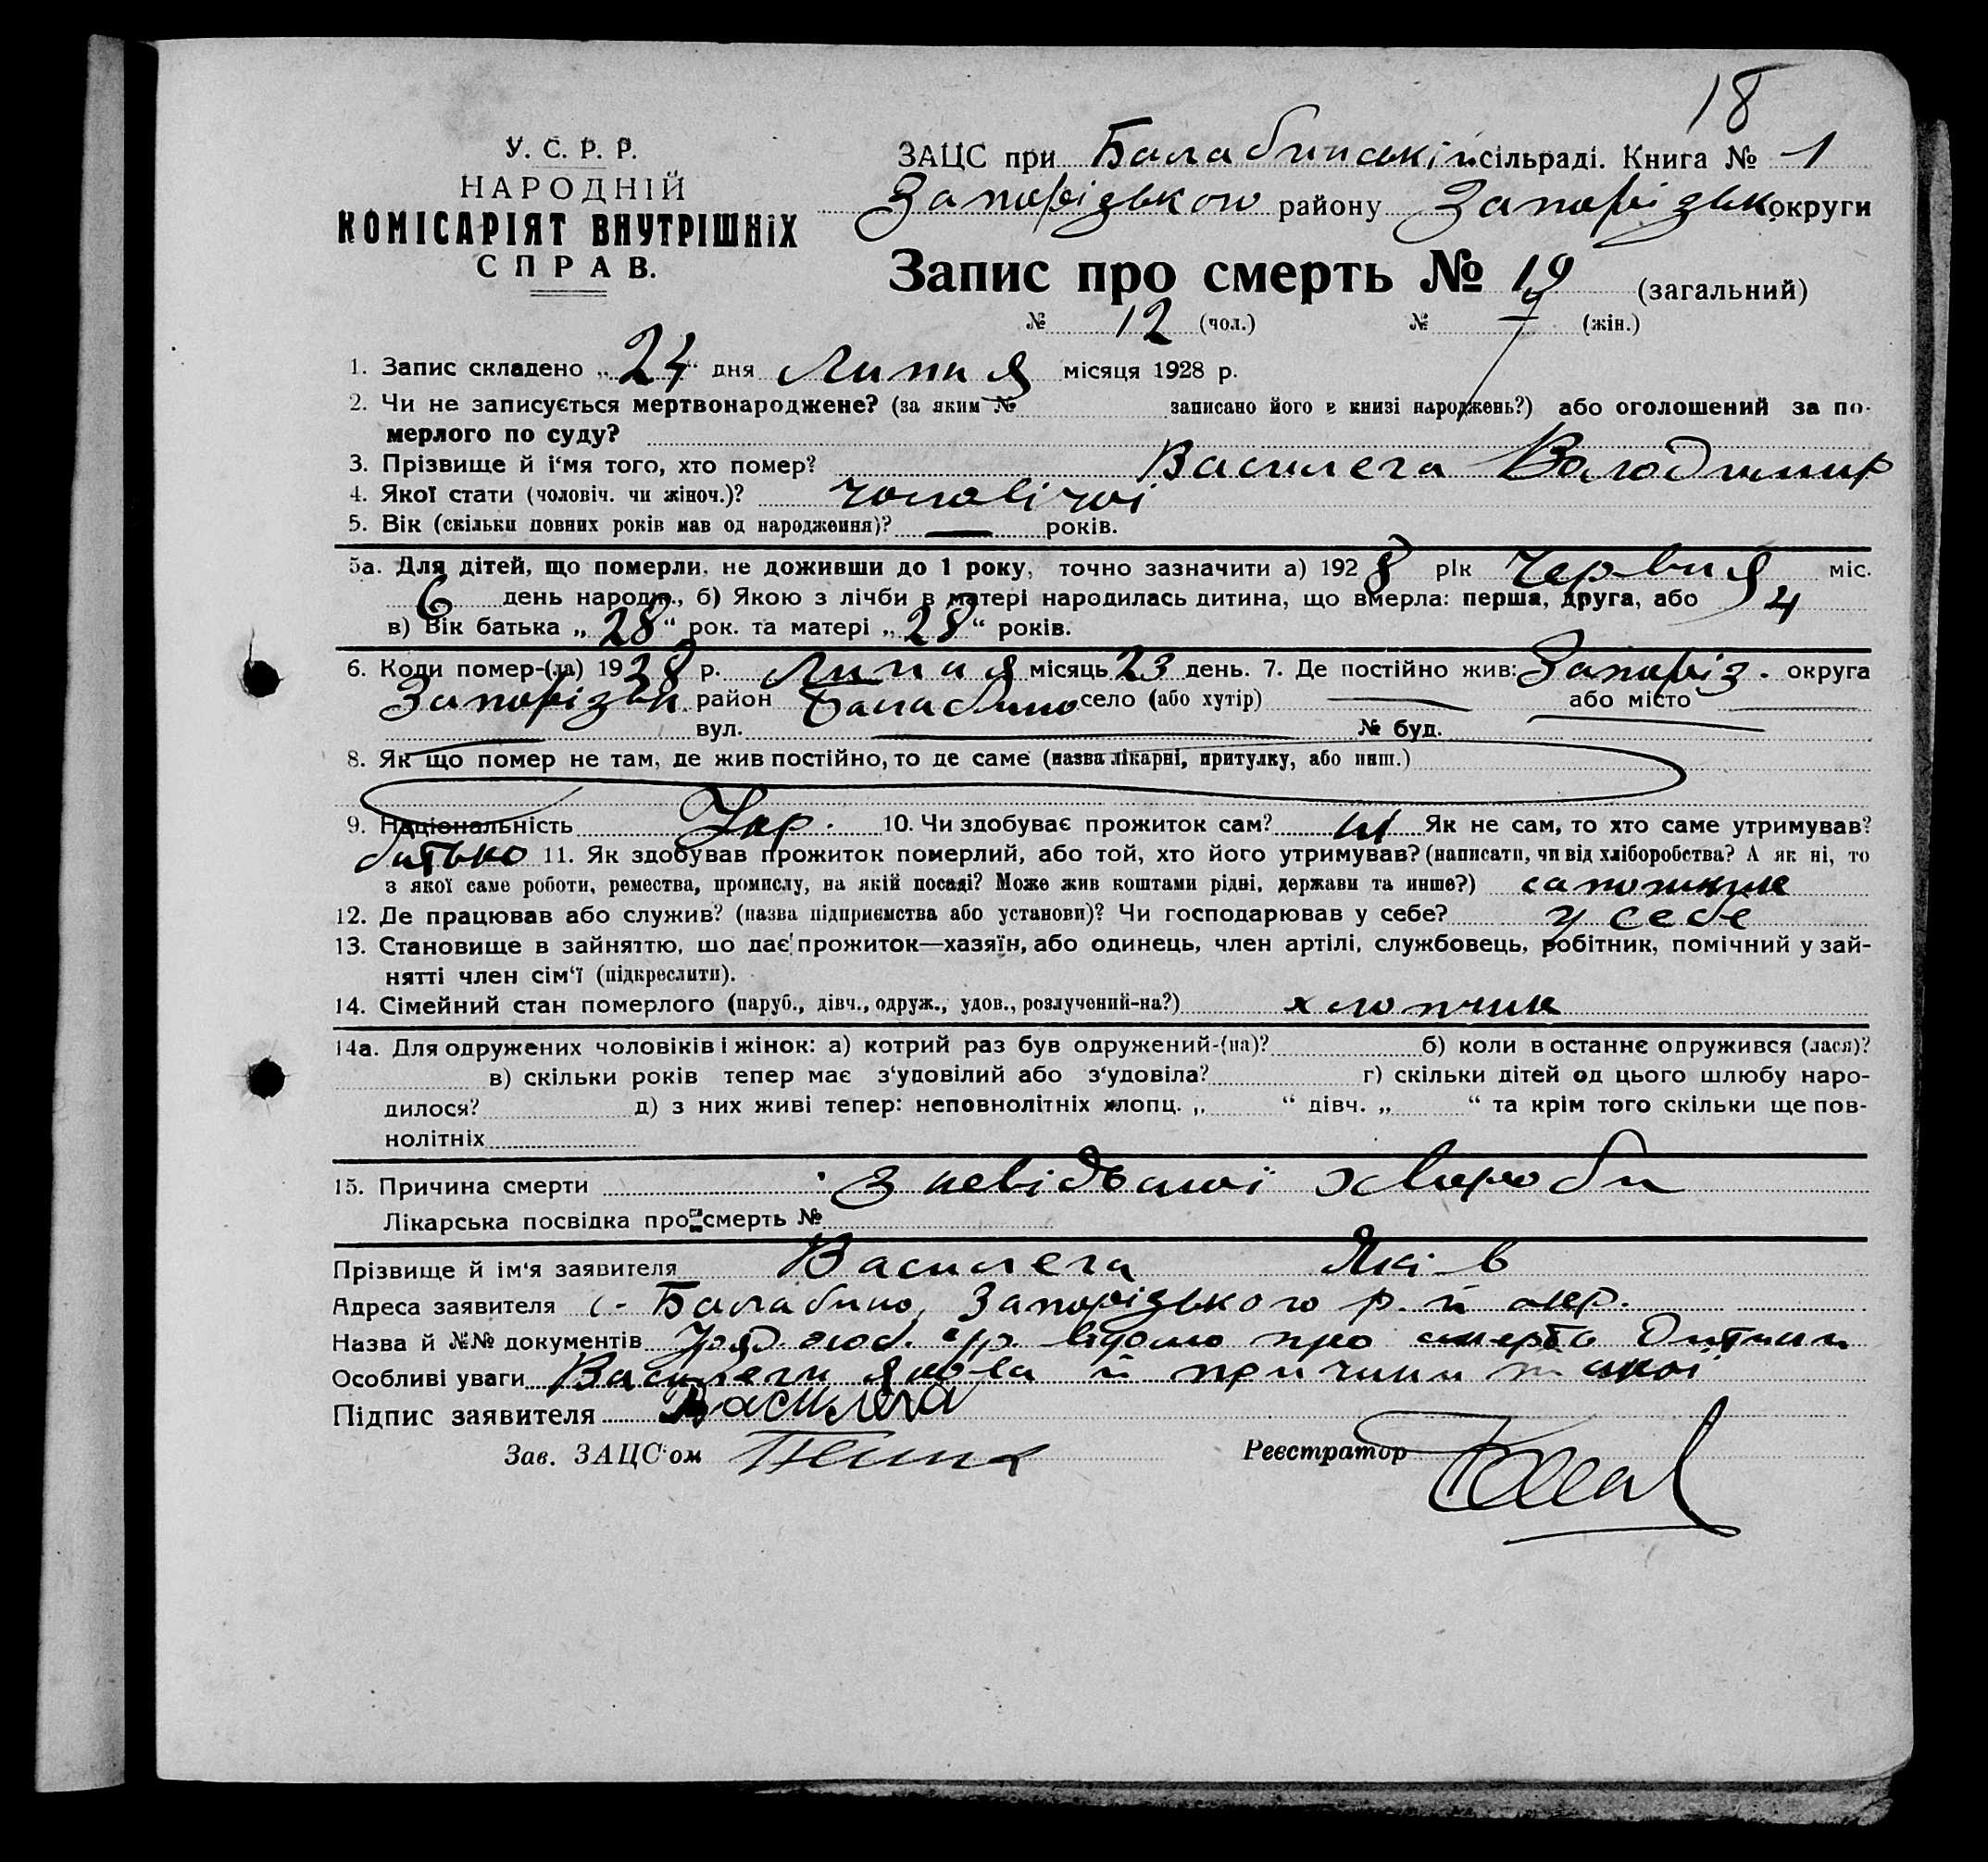 18
У. С. Р. Р.
НАРОДНІЙ
КОМІСАРІЯТ ВНУТРІШНІХ
СПРАВ.
ЗАЦС при Балабинській сільраді. Книга № 1
Запорізького району Запорізьк округи
Запис про смерть № 19 (загальний)
№ 12 (чол.) № 7 (жін.)
1. Запис складено „24“ дня Липня місяця 1928 р.
2. Чи не записується мертвонароджене? (за яким № записано його в книзі народжень?) або оголошений за по-
мерлого по суду?
3. Прізвище й і‘мя того, хто помер? Василега Володимир
4. Якої стати (чоловіч. чи жіноч.)? чоловічої
5. Вік (скільки повних років мав од народження)? — років.
5а. Для дітей, що померли, не доживши до 1 року, точно зазначити а) 1928 рік Червня міс.
6 день народж., б) Якою з лічби в матері народилась дитина, що вмерла: перша, друга, або 4
в) Вік батька „28“ рок. та матері „28“ років.
6. Коли помер-(ла) 1928 р. Липня місяць 23 день. 7. Де постійно жив: Запоріз. округа
Запорізьк район Балабино село (або хутір) — або місто —
— вул. — № буд. —
8. Як що помер не там, де жив постійно, то де саме (назва лікарні, притулку, або инш.)
9. Національність Укр. 10. Чи здобуває прожиток сам? ні Як не сам, то хто саме утримував?
батько 11. Як здобував прожиток померлий, або той, хто його утримував? (написати, чи від хліборобства? А як ні, то
з якої саме роботи, ремества, промислу, на якій посаді? Може жив коштами рідні, держави та инше?) сапожник
12. Де працював або служив? (назва підприємства або установи)? Чи господарював у себе? у себе
13. Становище в зайняттю, що дає прожиток—хазяїн, або одинець, член артілі, службовець, робітник, помічний у зай-
нятті член сім‘ї (підкреслити).
14. Сімейний стан померлого (паруб., дівч., одруж., удов., розлучений-на?) хлопчик
14а. Для одружених чоловіків і жінок: а) котрий раз був одружений-(на)? б) коли в останнє одружився (лася)?
в) скільки років тепер має з‘удовілий або з‘удовіла? г) скільки дітей од цього шлюбу наро-
дилося? д) з них живі тепер: неповнолітніх хлопц. „ “ дівч. „ “ та крім того скільки ще пов-
нолітніх
15. Причина смерти з невідомої хвороби
Лікарська посвідка про смерть №
Прізвище й ім‘я заявителя Василега Яків
Адреса заявителя с. Балабино, Запорізького р. й окр.
Назва й №№ документів відомо про смерть дитини
Особливі уваги Василеги Якова й причини такої
Підпис заявителя Василега
Зав. ЗАЦС‘ом
Реєстратор